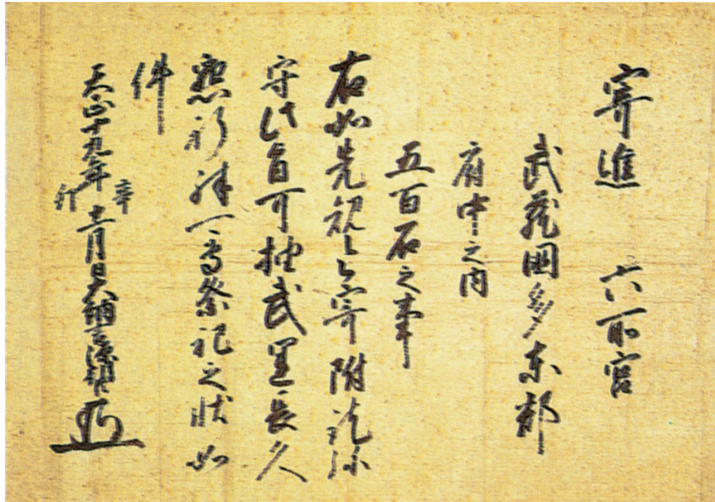 寄進 六所宮
武蔵國多东郡
府中之内
五百石之事
右如先規令寄附訖弥
守此旨可抽武運長久
懇祈殊可専祭祀之状如
件
天正十九年辛卯十一月日大納言源朝臣